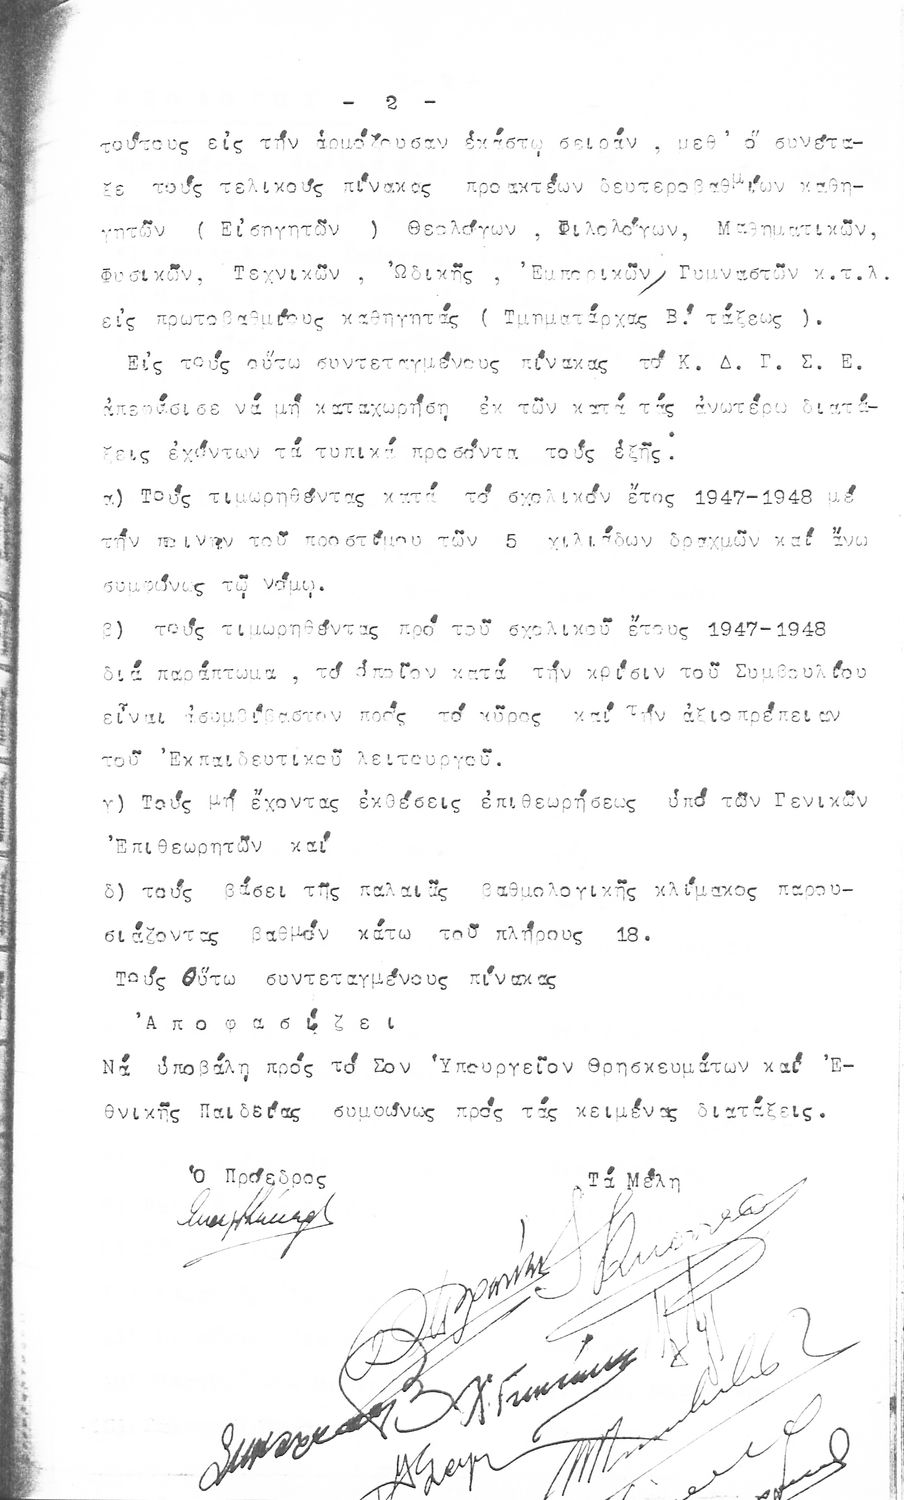 - 2 -
τούτους εἰς τήν ἁρμόζουσαν ἑκάστῳ σειράν , μεθ' ὅ συνέτα-
ξε τούς τελικούς πίνακας προακτέων δευτεροβαθμίων καθη-
γητῶν ( Εἰσηγητῶν ) Θεολόγων , Φιλολόγων, Μαθηματικῶν,
Φυσικῶν, Τεχνικῶν , Ὠδικῆς , Ἐμπορικῶν, Γυμναστῶν κ.τ.λ.
εἰς πρωτοβαθμίους καθηγητάς ( Τμηματάρχας Β.' τάξεως ).
Εἰς τούς οὕτω συντεταγμένους πίνακας τό Κ. Δ. Γ. Σ. Ε.
ἀπεφάσισε νά μή καταχωρήσῃ ἐκ τῶν κατά τάς ἀνωτέρω διατά-
ξεις ἐχόντων τά τυπικά προσόντα τούς ἑξῆς:
α) Τούς τιμωρηθέντας κατά τό σχολικόν ἔτος 1947-1948 μέ
τήν ποινήν τοῦ προστίμου τῶν 5 χιλιάδων δραχμῶν καί ἄνω
συμφώνως τῷ νόμῳ.
β) τούς τιμωρηθέντας πρό τοῦ σχολικοῦ ἔτους 1947-1948
διά παράπτωμα , τό ὁποῖον κατά τήν κρίσιν τοῦ Συμβουλίου
εἶναι ἀσυμβίβαστον πρός τό κῦρος καί τήν ἀξιοπρέπειαν
τοῦ Ἐκπαιδευτικοῦ λειτουργοῦ.
γ) Τούς μή ἔχοντας ἐκθέσεις ἐπιθεωρήσεως ὑπό τῶν Γενικῶν
Ἐπιθεωρητῶν καί
δ) τούς βάσει τῆς παλαιᾶς βαθμολογικῆς κλίμακος παρου-
σιάζοντας βαθμόν κάτω τοῦ πλήρους 18.
Τούς Οὕτω συντεταγμένους πίνακας
Ἀ π ο φ α σ ί ζ ε ι
Νά ὑποβάλῃ πρός τό Σον Ὑπουργεῖον Θρησκευμάτων καί Ἐ-
θνικῆς Παιδείας συμφώνως πρός τάς κειμένας διατάξεις.
Ὁ Πρόεδρος Τά Μέλη